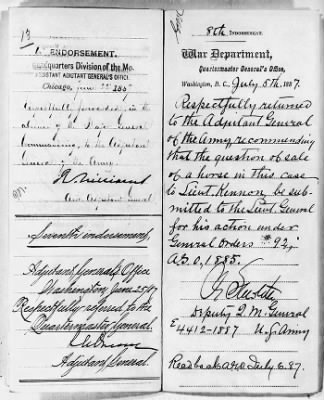 ENDORSEMENT.
Headquarters Division of the Mo.
ASSISTANT ADJUTANT GENERAL'S OFFICE
Chicago, June 22 1887
Respectfully forwarded, in the
absence of the Major General
Commanding, to the Adjutant
General of the Army.
Asst. Adjutant General
Seventh endorsement,
Adjutant General's Office
Washington June 25/87
Respectfully referred to the
Quartermaster General.
Adjutant General.
8th INDORSEMENT.
War Department,
Quartermaster General's Office,
Washington, D. C. July 5th, 1887.
Respectfully returned
to the Adjutant General
of the Army, recommending
that the question of sale
of a horse in this case
to Lieut. Kennon, be sub-
mitted to the Lieut. General
for his action under
General Orders #92,
A.G.O, 1885.
Deputy Q. M. General
E 4412-1887 U.S. Army
Rec'd back AGO July 6. 87.